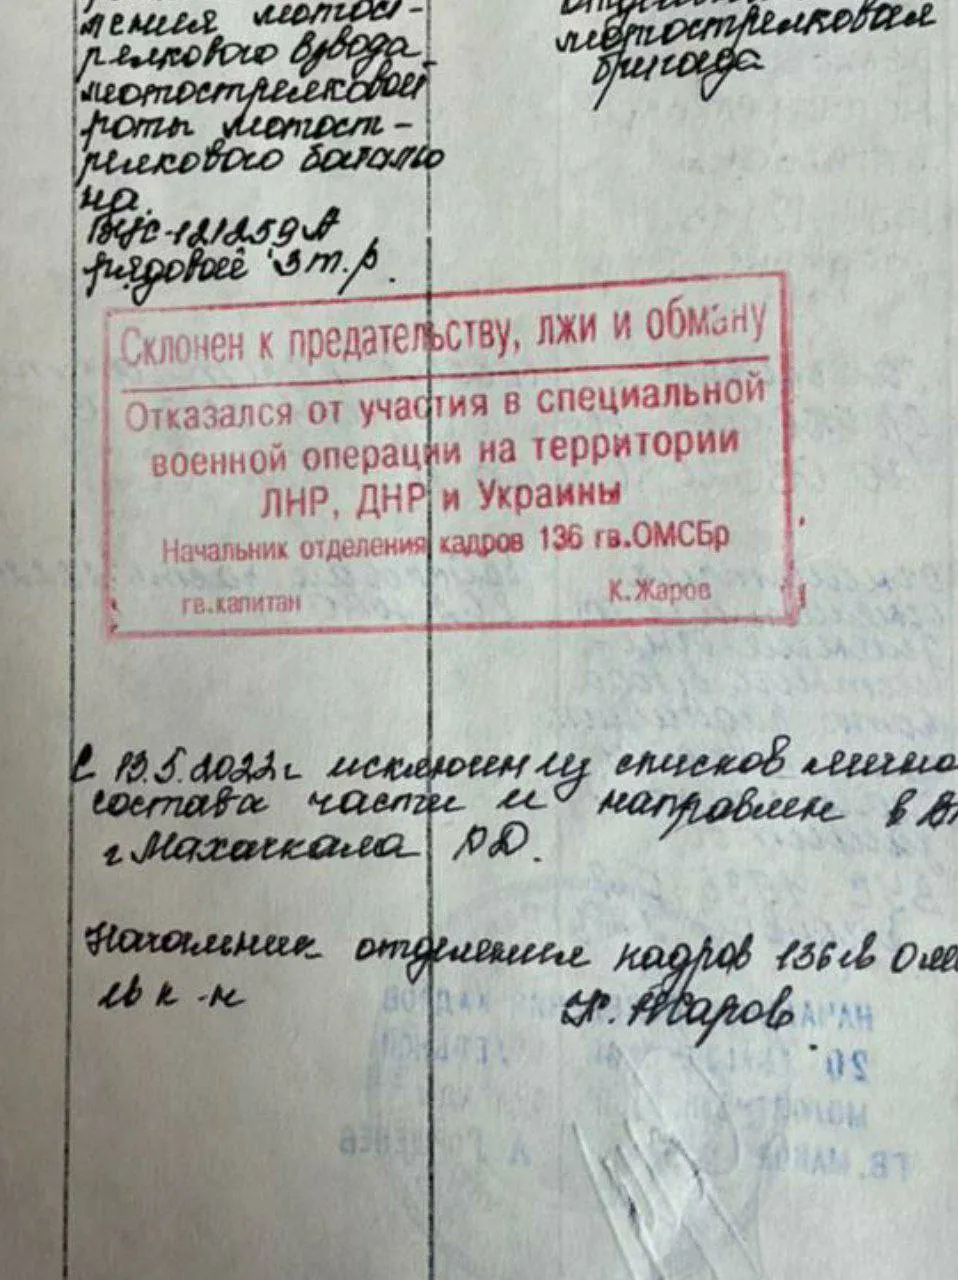 ления мотост-
релкового взвода
мотострелковой
роты мотост-
релкового батальо
на.
ВУС-121259А
рядовой 3 т.р.
мотострелковая
бригада
Склонен к предательству, лжи и обману
Отказался от участия в специальной
военной операции на территории
ЛНР, ДНР и Украины
Начальник отделения кадров 136 гв.ОМСБр
гв.капитан К.Жаров
С 13.5.2022г исключен из списков лично
состава части и направлен в
г Махачкала РД.
Начальник отделения кадров 136 гв
гв к-н К. Жаров